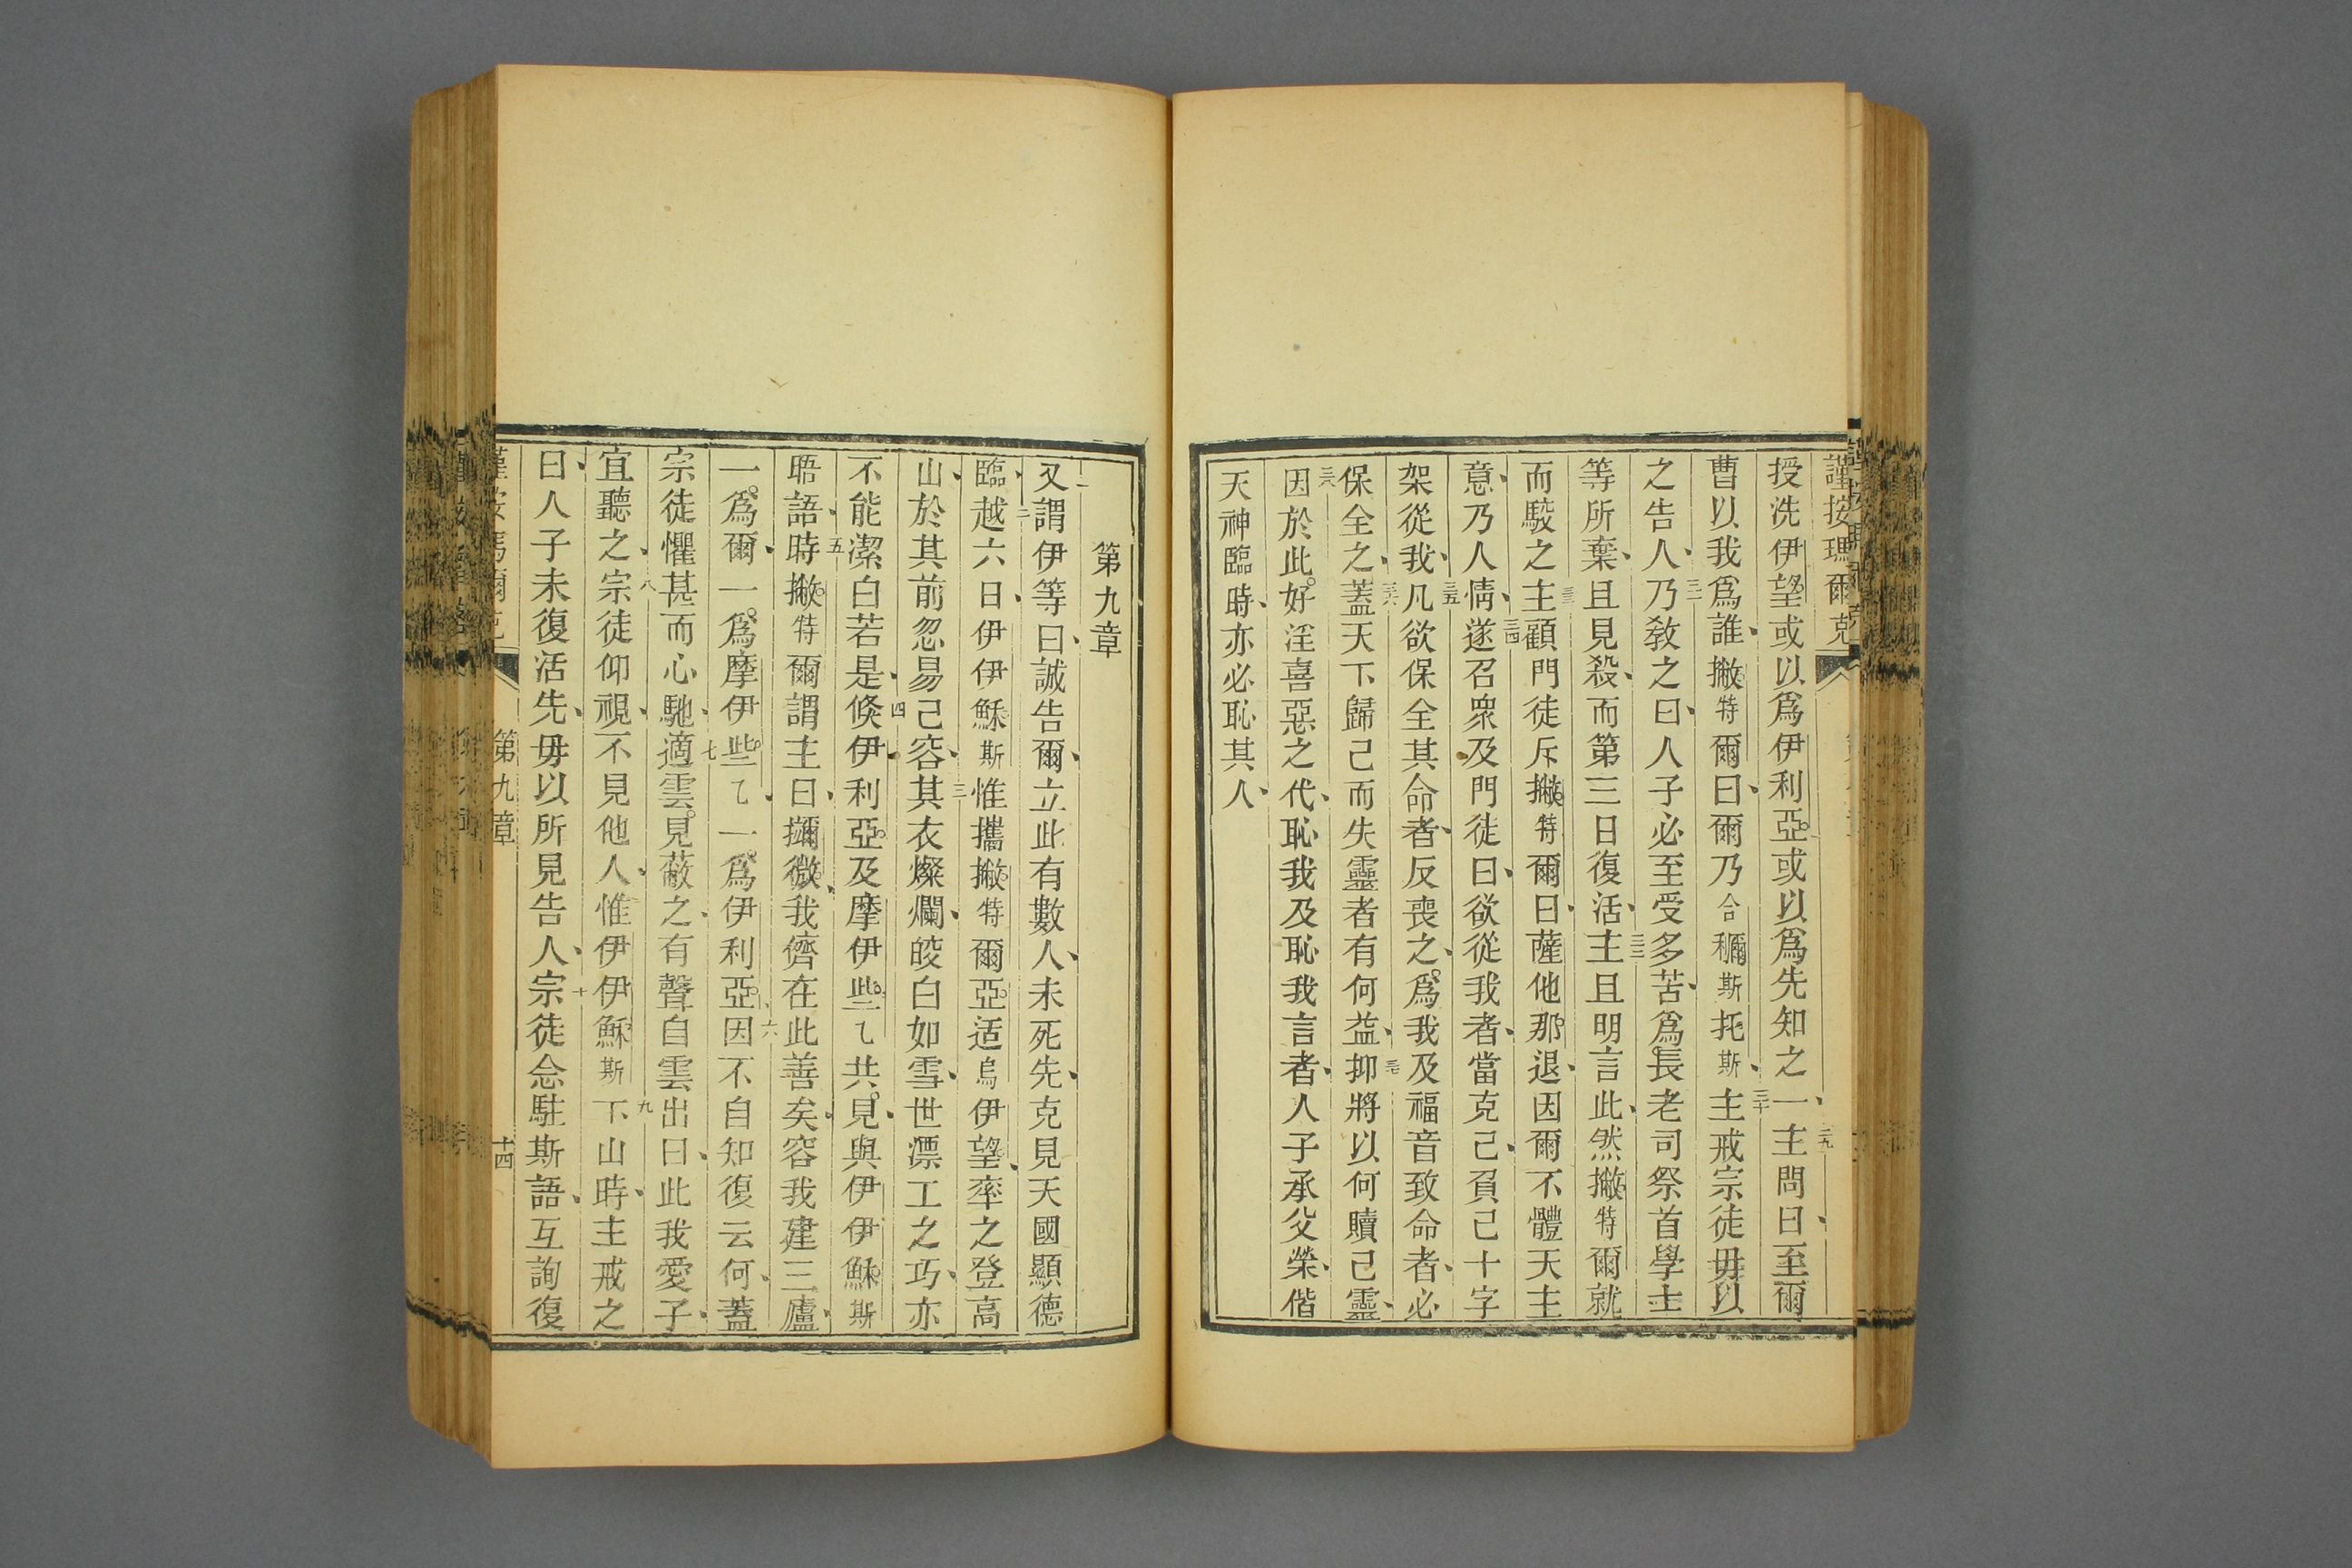 謹按瑪爾克
授洗伊望或以爲伊利亞或以爲先知之一二九主問曰至爾
曹以我爲誰撇特爾曰爾乃合穪斯托斯三十主戒宗徒毋以
之告人三一乃敎之曰人子必至受多苦爲長老司祭首學士
等所棄且見殺而第三日復活三二主且明言此然撇特爾就
而駿之三三主顧門徒斥撇特爾曰薩他那退因爾不體天主
意乃人情三四遂召衆及門徒曰欲從我者當克己負己十字
架從我三五凡欲保全其命者反喪之爲我及福音致命者必
保全之三六蓋天下歸己而失靈者有何益三七抑將以何贖己靈
三八因於此好淫喜惡之代恥我及恥我言者人子承父榮偕
天神臨時亦必恥其人
第九章
一又謂伊等曰誠告爾立此有數人未死先克見天國顯德
臨二越六日伊伊穌斯惟攜撇特爾亞适烏伊望率之登高
山於其前忽易己容三其衣燦爛皎白如雪世漂工之巧亦
不能潔白若是四倏伊利亞及摩伊些乙共見與伊伊穌斯
晤語時五撇特爾謂主曰擟微我儕在此善矣容我建三廬
一爲爾一爲摩伊些乙一爲伊利亞六因不自知復云何蓋
宗徒懼甚而心馳七適雲見蔽之有聲自雲出曰此我愛子
宜聽之八宗徒仰視不見他人惟伊伊穌斯九下山時主戒之
曰人子未復活先毋以所見告人十宗徒念駐斯語互詢復
第九章
十四